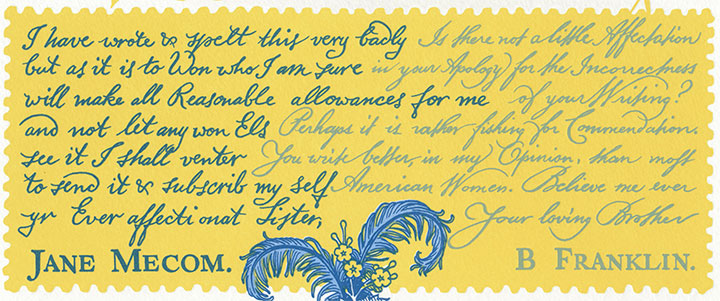 I have wrote & spelt this very badly
but as it is to Won who I am sure
will make all Reasonable allowances for me
and not let any won Els
see it I shall venter
to send it & subscrib my self
yr Ever affectionat Sister,
JANE MECOM.
Is there not a little Affectation
in your Apology for the Incorrectness
of your Writing?
Perhaps it is rather fishing for Commendation.
You write better, in my Opinion, than moſt
American Women. Believe me ever
Your loving Brother
B FRANKLIN.